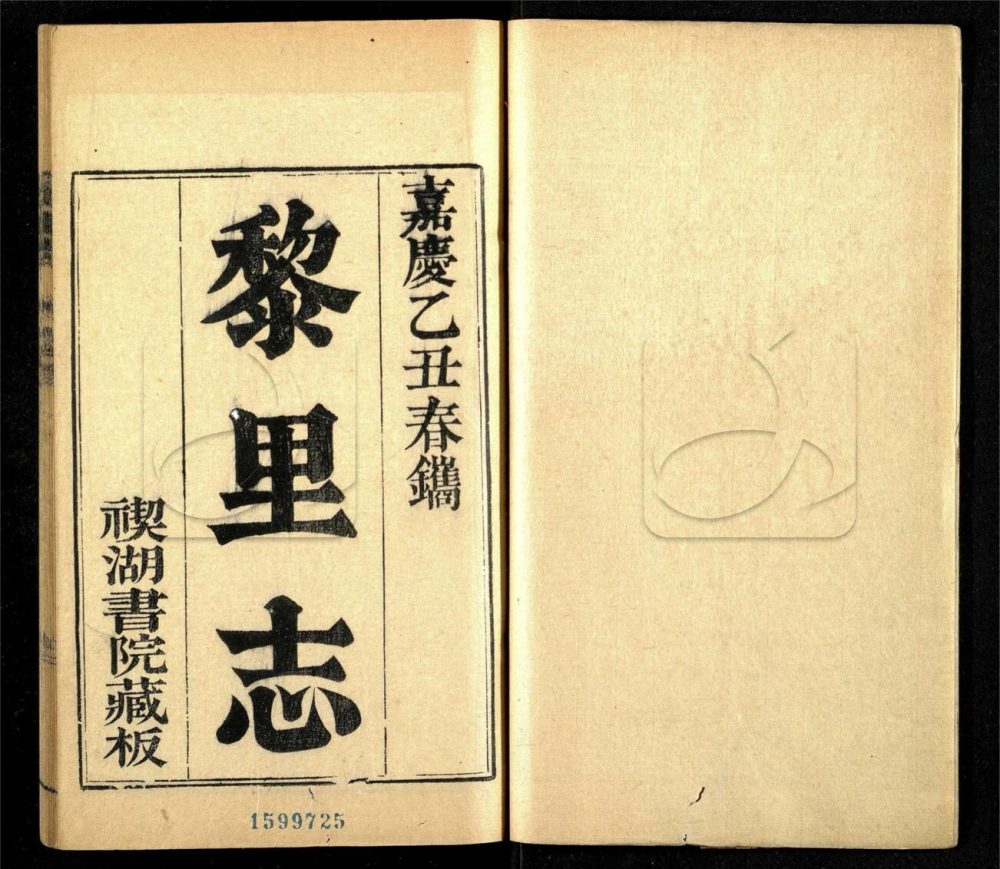 嘉慶乙丑春鐫
黎里志
禊湖書院藏板
1599725